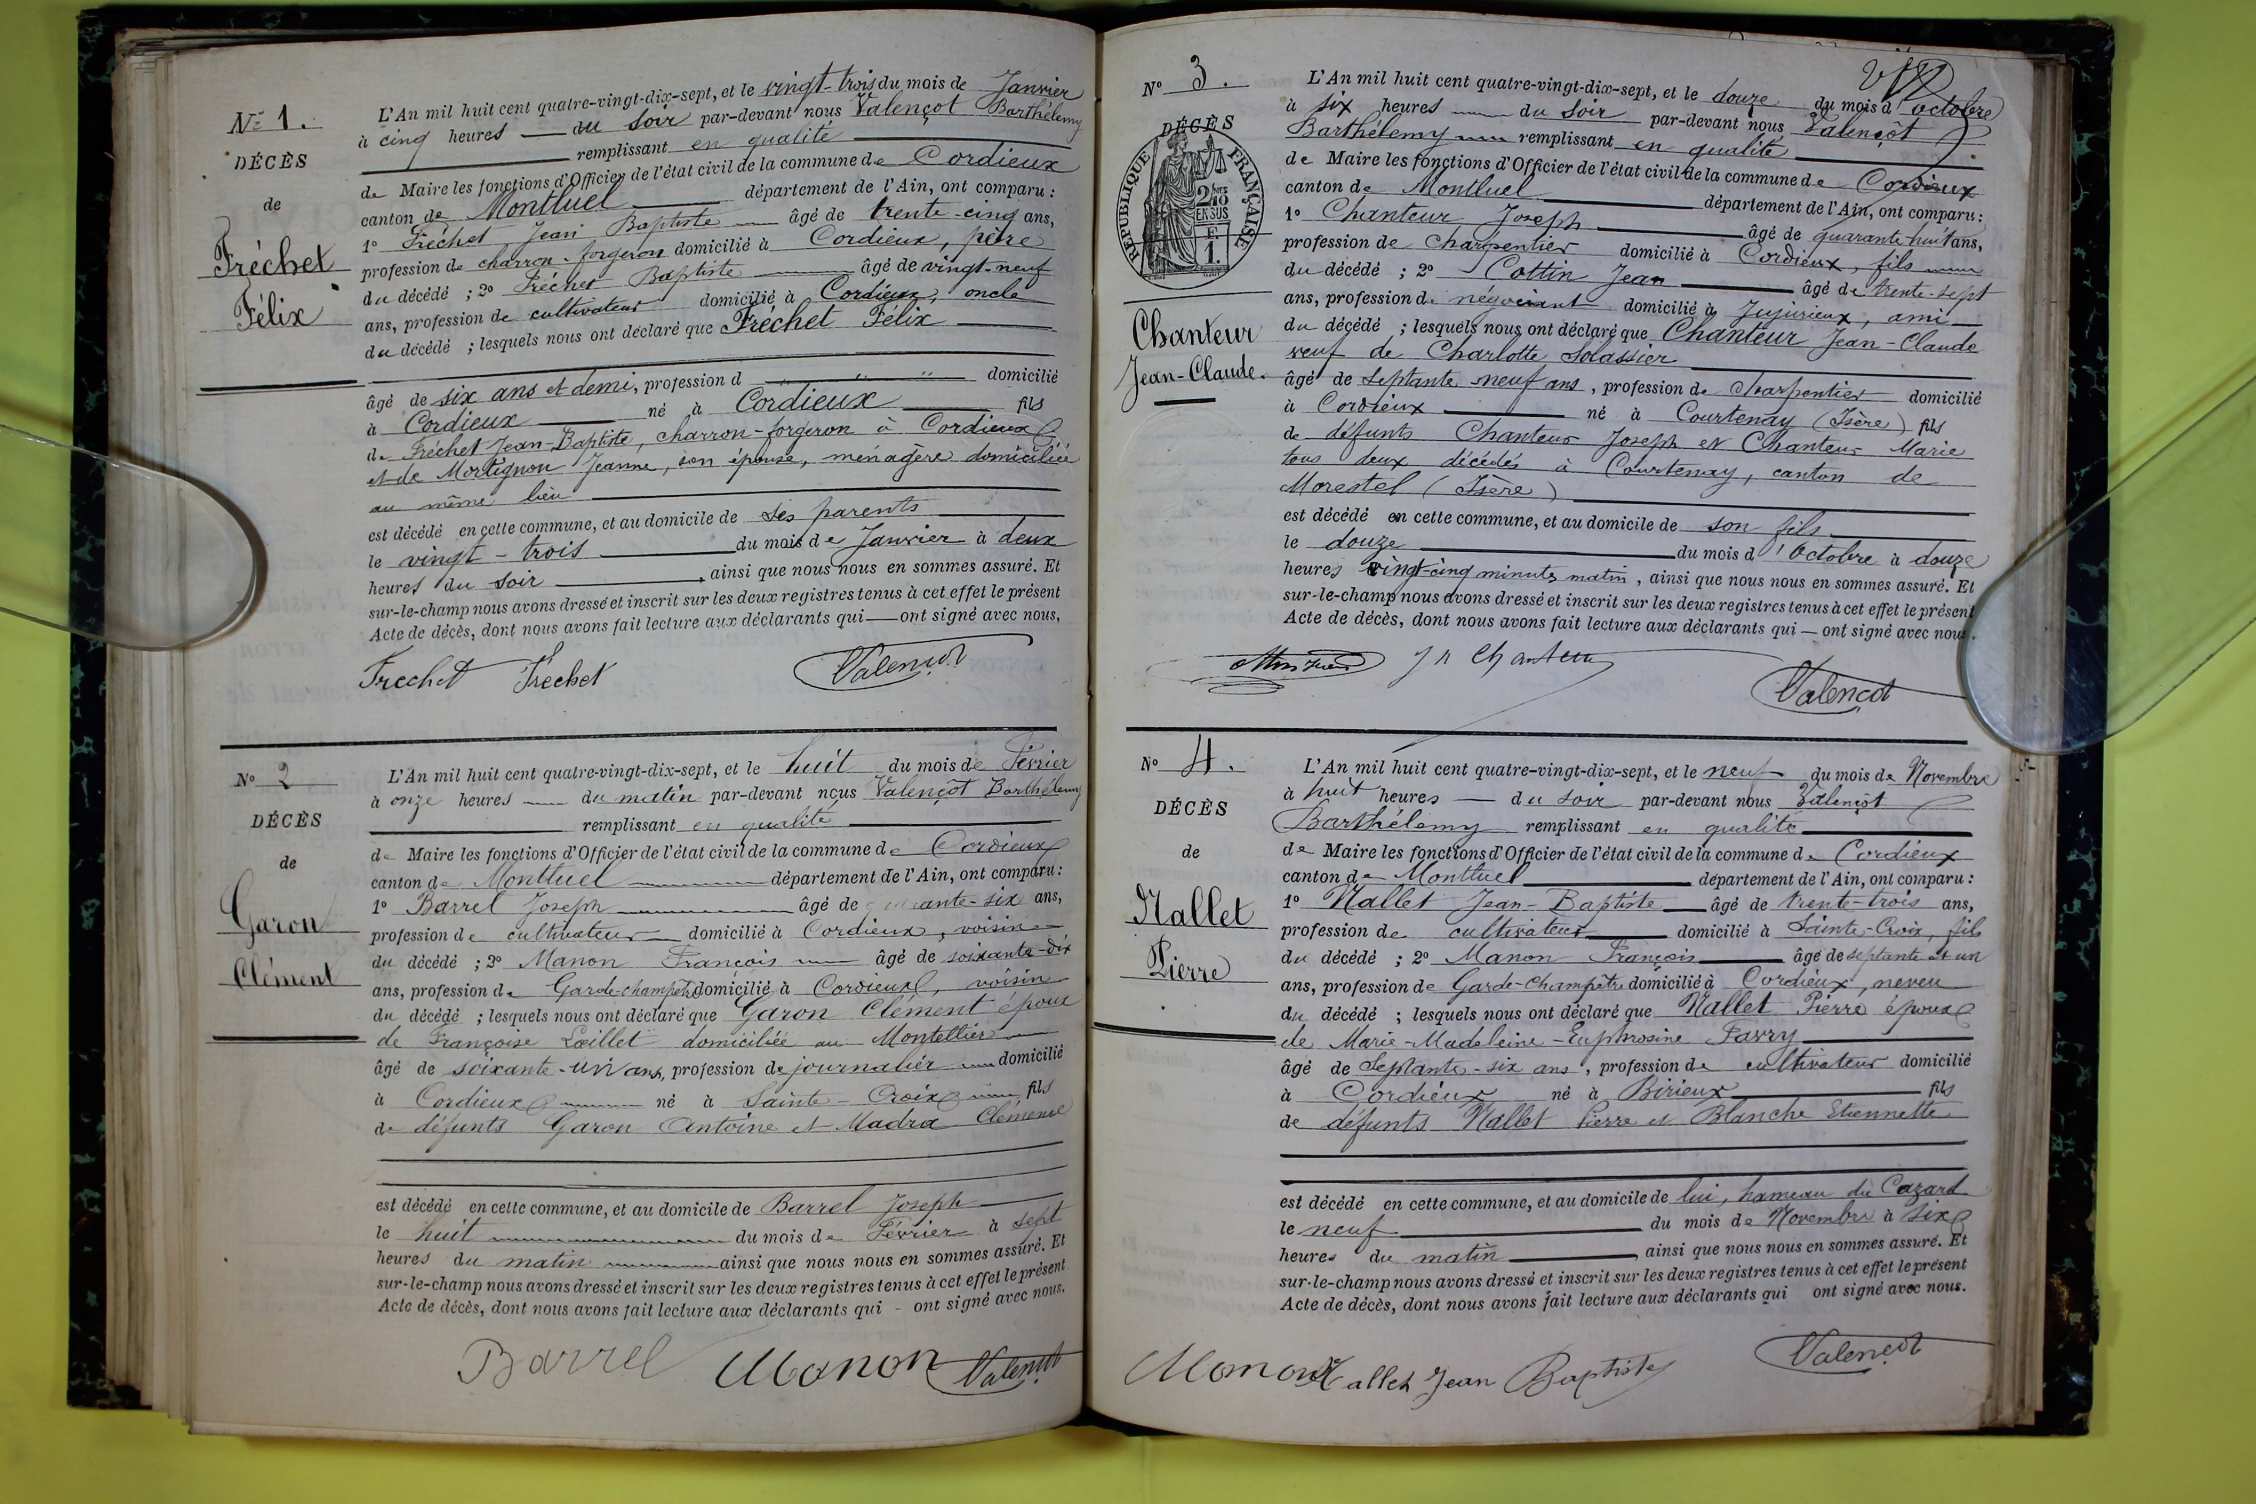 Nº 1.
DÉCÈS
de
Fréchet
Félix
L'An mil huit cent quatre-vingt-dix-sept, et le vingt-trois du mois de Janvier
à cinq heures du soir par-devant nous Valençot Barthélemy
remplissant en qualité
de Maire les fonctions d'Officier de l'état civil de la commune de Cordieux
canton de Montluel département de l'Ain, ont comparu :
1º Fréchet Jean Baptiste âgé de trente-cinq ans,
profession de charron-forgeron domicilié à Cordieux, père
du décédé ; 2º Fréchet Baptiste âgé de vingt-neuf
ans, profession de cultivateur domicilié à Cordieux, oncle
du décédé ; lesquels nous ont déclaré que Fréchet Félix
âgé de six ans et demi, profession d " " " domicilié
à Cordieux né à Cordieux fils
de Fréchet Jean-Baptiste, charron-forgeron à Cordieux
et de Mortignon Jeanne, son épouse, ménagère domiciliée
au même lieu
est décédé en cette commune, et au domicile de ses parents
le vingt-trois du mois de Janvier à deux
heures du soir , ainsi que nous nous en sommes assuré. Et
sur-le-champ nous avons dressé et inscrit sur les deux registres tenus à cet effet le présent
Acte de décès, dont nous avons fait lecture aux déclarants qui — ont signé avec nous.
Frechet Fréchet Valençot
Nº 2
DÉCÈS
de
Garon
Clément
L'An mil huit cent quatre-vingt-dix-sept, et le huit du mois de Février
à onze heures du matin par-devant nous Valençot Barthélemy
remplissant en qualité
de Maire les fonctions d'Officier de l'état civil de la commune de Cordieux
canton de Montluel département de l'Ain, ont comparu :
1º Barrel Joseph âgé de ans,
profession de cultivateur domicilié à Cordieux, voisin
du décédé ; 2º Manon François âgé de soixante-dix
ans, profession de Garde-champêtre domicilié à Cordieux, voisin
du décédé ; lesquels nous ont déclaré que Garon Clément époux
de Françoise Lœillet domiciliée au Montellier
âgé de soixante-un ans, profession de journalier domicilié
à Cordieux né à Sainte-Croix fils
de défunts Garon Antoine et Madra Clémence
est décédé en cette commune, et au domicile de Barrel Joseph
le huit du mois de Février à sept
heures du matin ainsi que nous nous en sommes assuré. Et
sur-le-champ nous avons dressé et inscrit sur les deux registres tenus à cet effet le présent
Acte de décès, dont nous avons fait lecture aux déclarants qui - ont signé avec nous.
Barrel Manon Valençot
Nº 3.
DÉCÈS
REPUBLIQUE FRANÇAISE
2/10
EN SUS
E.
1.
Chanteur
Jean-Claude.
L'An mil huit cent quatre-vingt-dix-sept, et le douze du mois d'octobre
à six heures du soir par-devant nous Valençot
Barthélemy remplissant en qualité
de Maire les fonctions d'Officier de l'état civil de la commune de Cordieux
canton de Montluel département de l'Ain, ont comparu :
1º Chanteur Joseph âgé de quarante-huit ans,
profession de charpentier domicilié à Cordieux, fils
du décédé ; 2º Cottin Jean âgé de trente-sept
ans, profession de négociant domicilié à Jujurieux, ami
du décédé ; lesquels nous ont déclaré que Chanteur Jean-Claude
veuf de Charlotte Solassier
âgé de septante-neuf ans, profession de charpentier domicilié
à Cordieux né à Courtenay (Isère) fils
de défunts Chanteur Joseph et Chanteur Marie
tous deux décédés à Courtenay, canton de
Morestel (Isère)
est décédé en cette commune, et au domicile de son fils
le douze du mois d'Octobre à douze
heures vingt-cinq minutes matin, ainsi que nous nous en sommes assuré. Et
sur-le-champ nous avons dressé et inscrit sur les deux registres tenus à cet effet le présent
Acte de décès, dont nous avons fait lecture aux déclarants qui — ont signé avec nous.
Jh Chanteur Valençot
Nº 4.
DÉCÈS
de
Mallet
Pierre
L'An mil huit cent quatre-vingt-dix-sept, et le neuf du mois de Novembre
à huit heures du soir par-devant nous Valençot
Barthélemy remplissant en qualité
de Maire les fonctions d'Officier de l'état civil de la commune de Cordieux
canton de Montluel département de l'Ain, ont comparu :
1º Mallet Jean-Baptiste âgé de trente-trois ans,
profession de cultivateur domicilié à Sainte-Croix, fils
du décédé ; 2º Manon François âgé de septante et un
ans, profession de Garde-Champêtre domicilié à Cordieux, neveu
du décédé ; lesquels nous ont déclaré que Mallet Pierre époux
de Marie-Madeleine-Euphrosine Favry
âgé de Septante-six ans, profession de cultivateur domicilié
à Cordieux né à Birieux fils
de défunts Mallet Pierre et Blanche Etiennette
est décédé en cette commune, et au domicile de lui, hameau du Cazard
le neuf du mois de Novembre à six
heures du matin , ainsi que nous nous en sommes assuré. Et
sur-le-champ nous avons dressé et inscrit sur les deux registres tenus à cet effet le présent
Acte de décès, dont nous avons fait lecture aux déclarants qui ont signé avec nous.
Manon Mallet Jean Baptiste Valençot